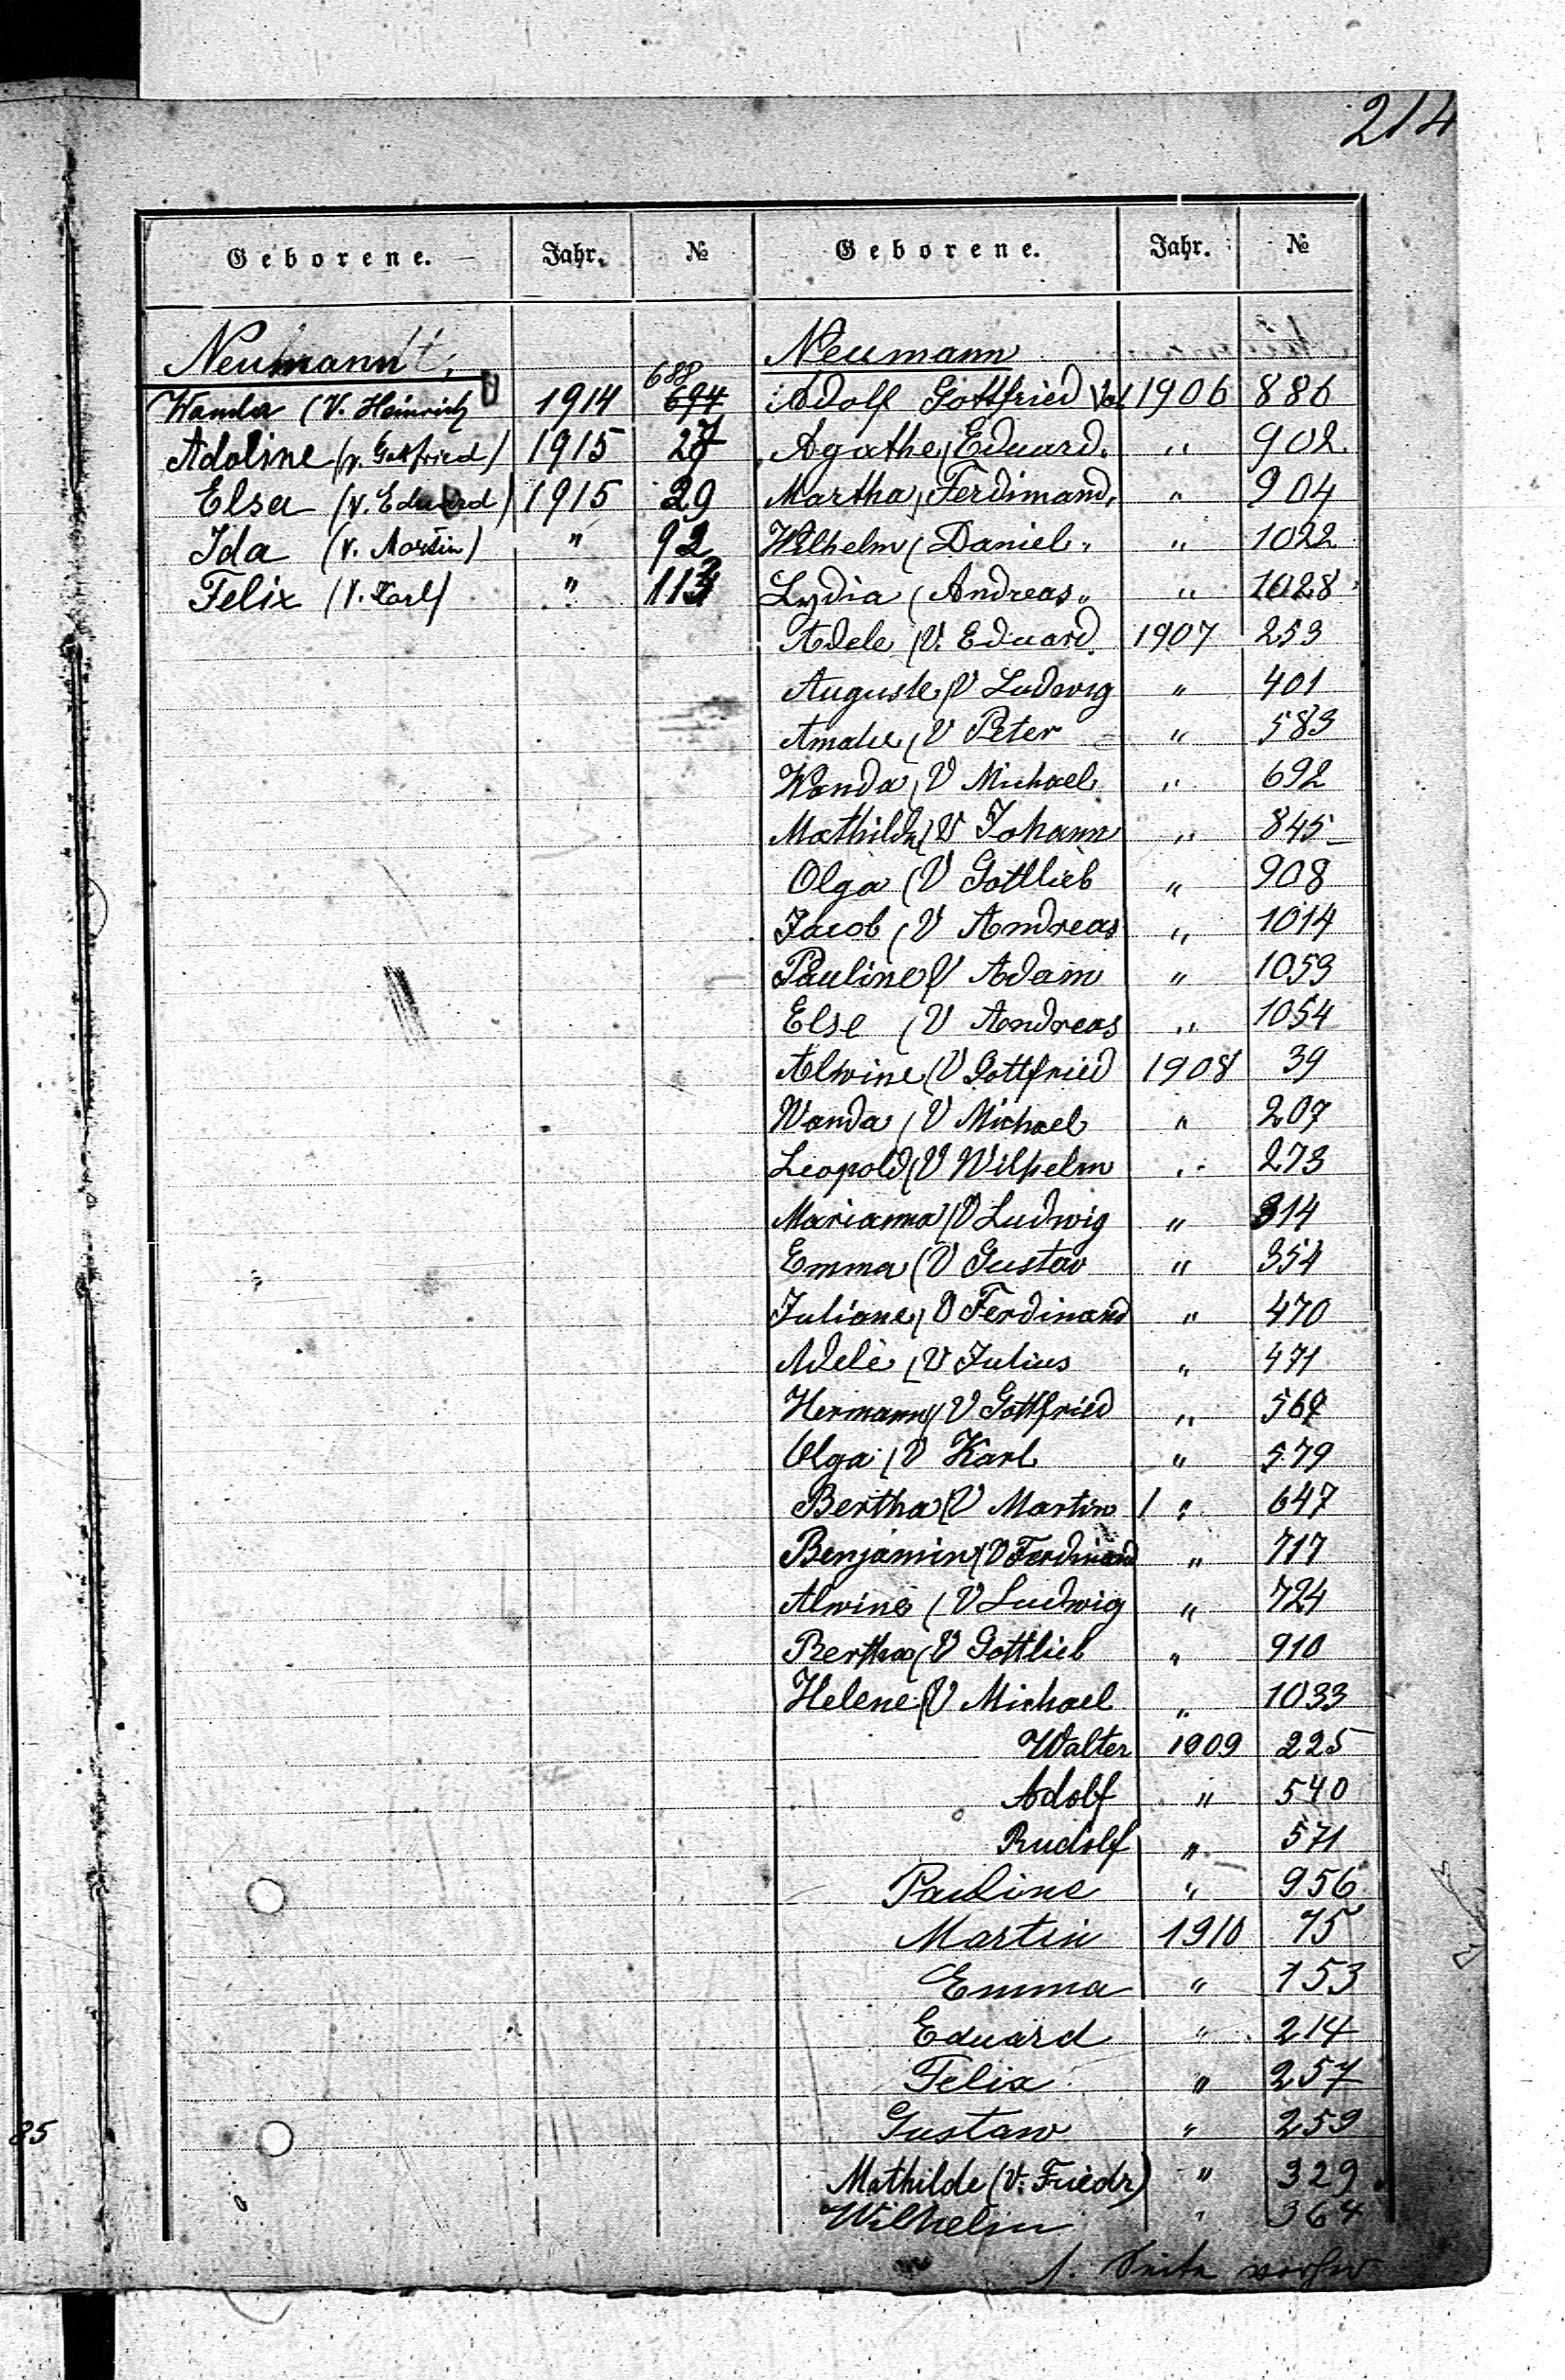 214
Geborene. Jahr. № Geborene. Jahr. №
Neumann
Wanda (V. Heinrich 1914 688 694
Adoline (v. Gottfried) 1915 27
Elsa (v. Eduard) 1915 29
Ida (v. Martin) " 92
Felix (V. Karl) " 113
Neumann
Adolf Gottfried Vat 1906 886
Agathe (Eduard " 902
Martha (Ferdinand " 904
Wilhelm (Daniel " 1022
Lydia (Andreas " 1028
Adele (V. Eduard 1907 253
Auguste (V Ludwig " 401
Amalie (V Peter " 583
Wanda (V Michael " 692
Mathilde (V Johann " 845
Olga (V Gottlieb " 908
Jacob (V Andreas " 1014
Pauline (V Adam " 1053
Else (V Andreas " 1054
Alwine (V Gottfried 1908 39
Wanda (V Michael " 207
Leopold (V Wilhelm " 273
Marianna (V Ludwig " 314
Emma (V Gustav " 354
Juliane (V Ferdinand " 470
Adele (V Julius " 471
Hermann (V Gottfried "
Olga (V Karl " 579
Bertha (V Martin " 647
Benjamin (V Ferdinand " 717
Alwine (V Ludwig " 724
Bertha (V Gottlieb " 910
Helene (V Michael " 1033
Walter 1909 225
Adolf " 540
Rudolf " 571
Pauline " 956
Martin 1910 75
Emma " 153
Eduard " 214
Felix " 257
Gustaw " 259
Mathilde (V. Friedr) " 329
Wilhelm " 364
1. Seite
85